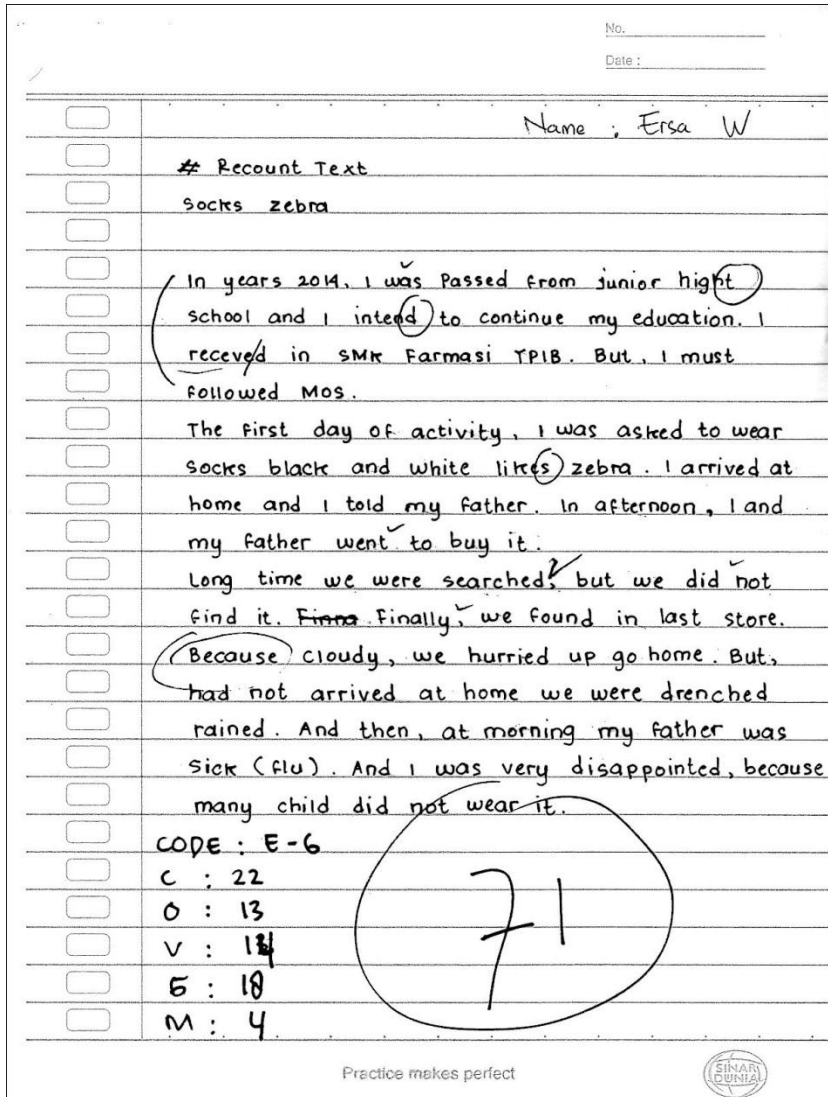 No.
Date :
Name : Ersa W
# Recount Text
Socks zebra
In years 2014, I was Passed from junior hight
school and I intend to continue my education. I
receved in SMK Farmasi YPIB. But, I must
followed MOS.
The first day of activity, I was asked to wear
socks black and white likes zebra. I arrived at
home and I told my father. In afternoon, I and
my father went to buy it.
Long time we were searched, but we did not
find it. Finally, we found in last store.
Because cloudy, we hurried up go home. But,
had not arrived at home we were drenched
rained. And then, at morning my father was
sick (flu). And I was very disappointed, because
many child did not wear it.
CODE : E-6
C : 22
O : 13
V : 14
G : 18
M : 4
71
Practice makes perfect
SINAR
DUNIA